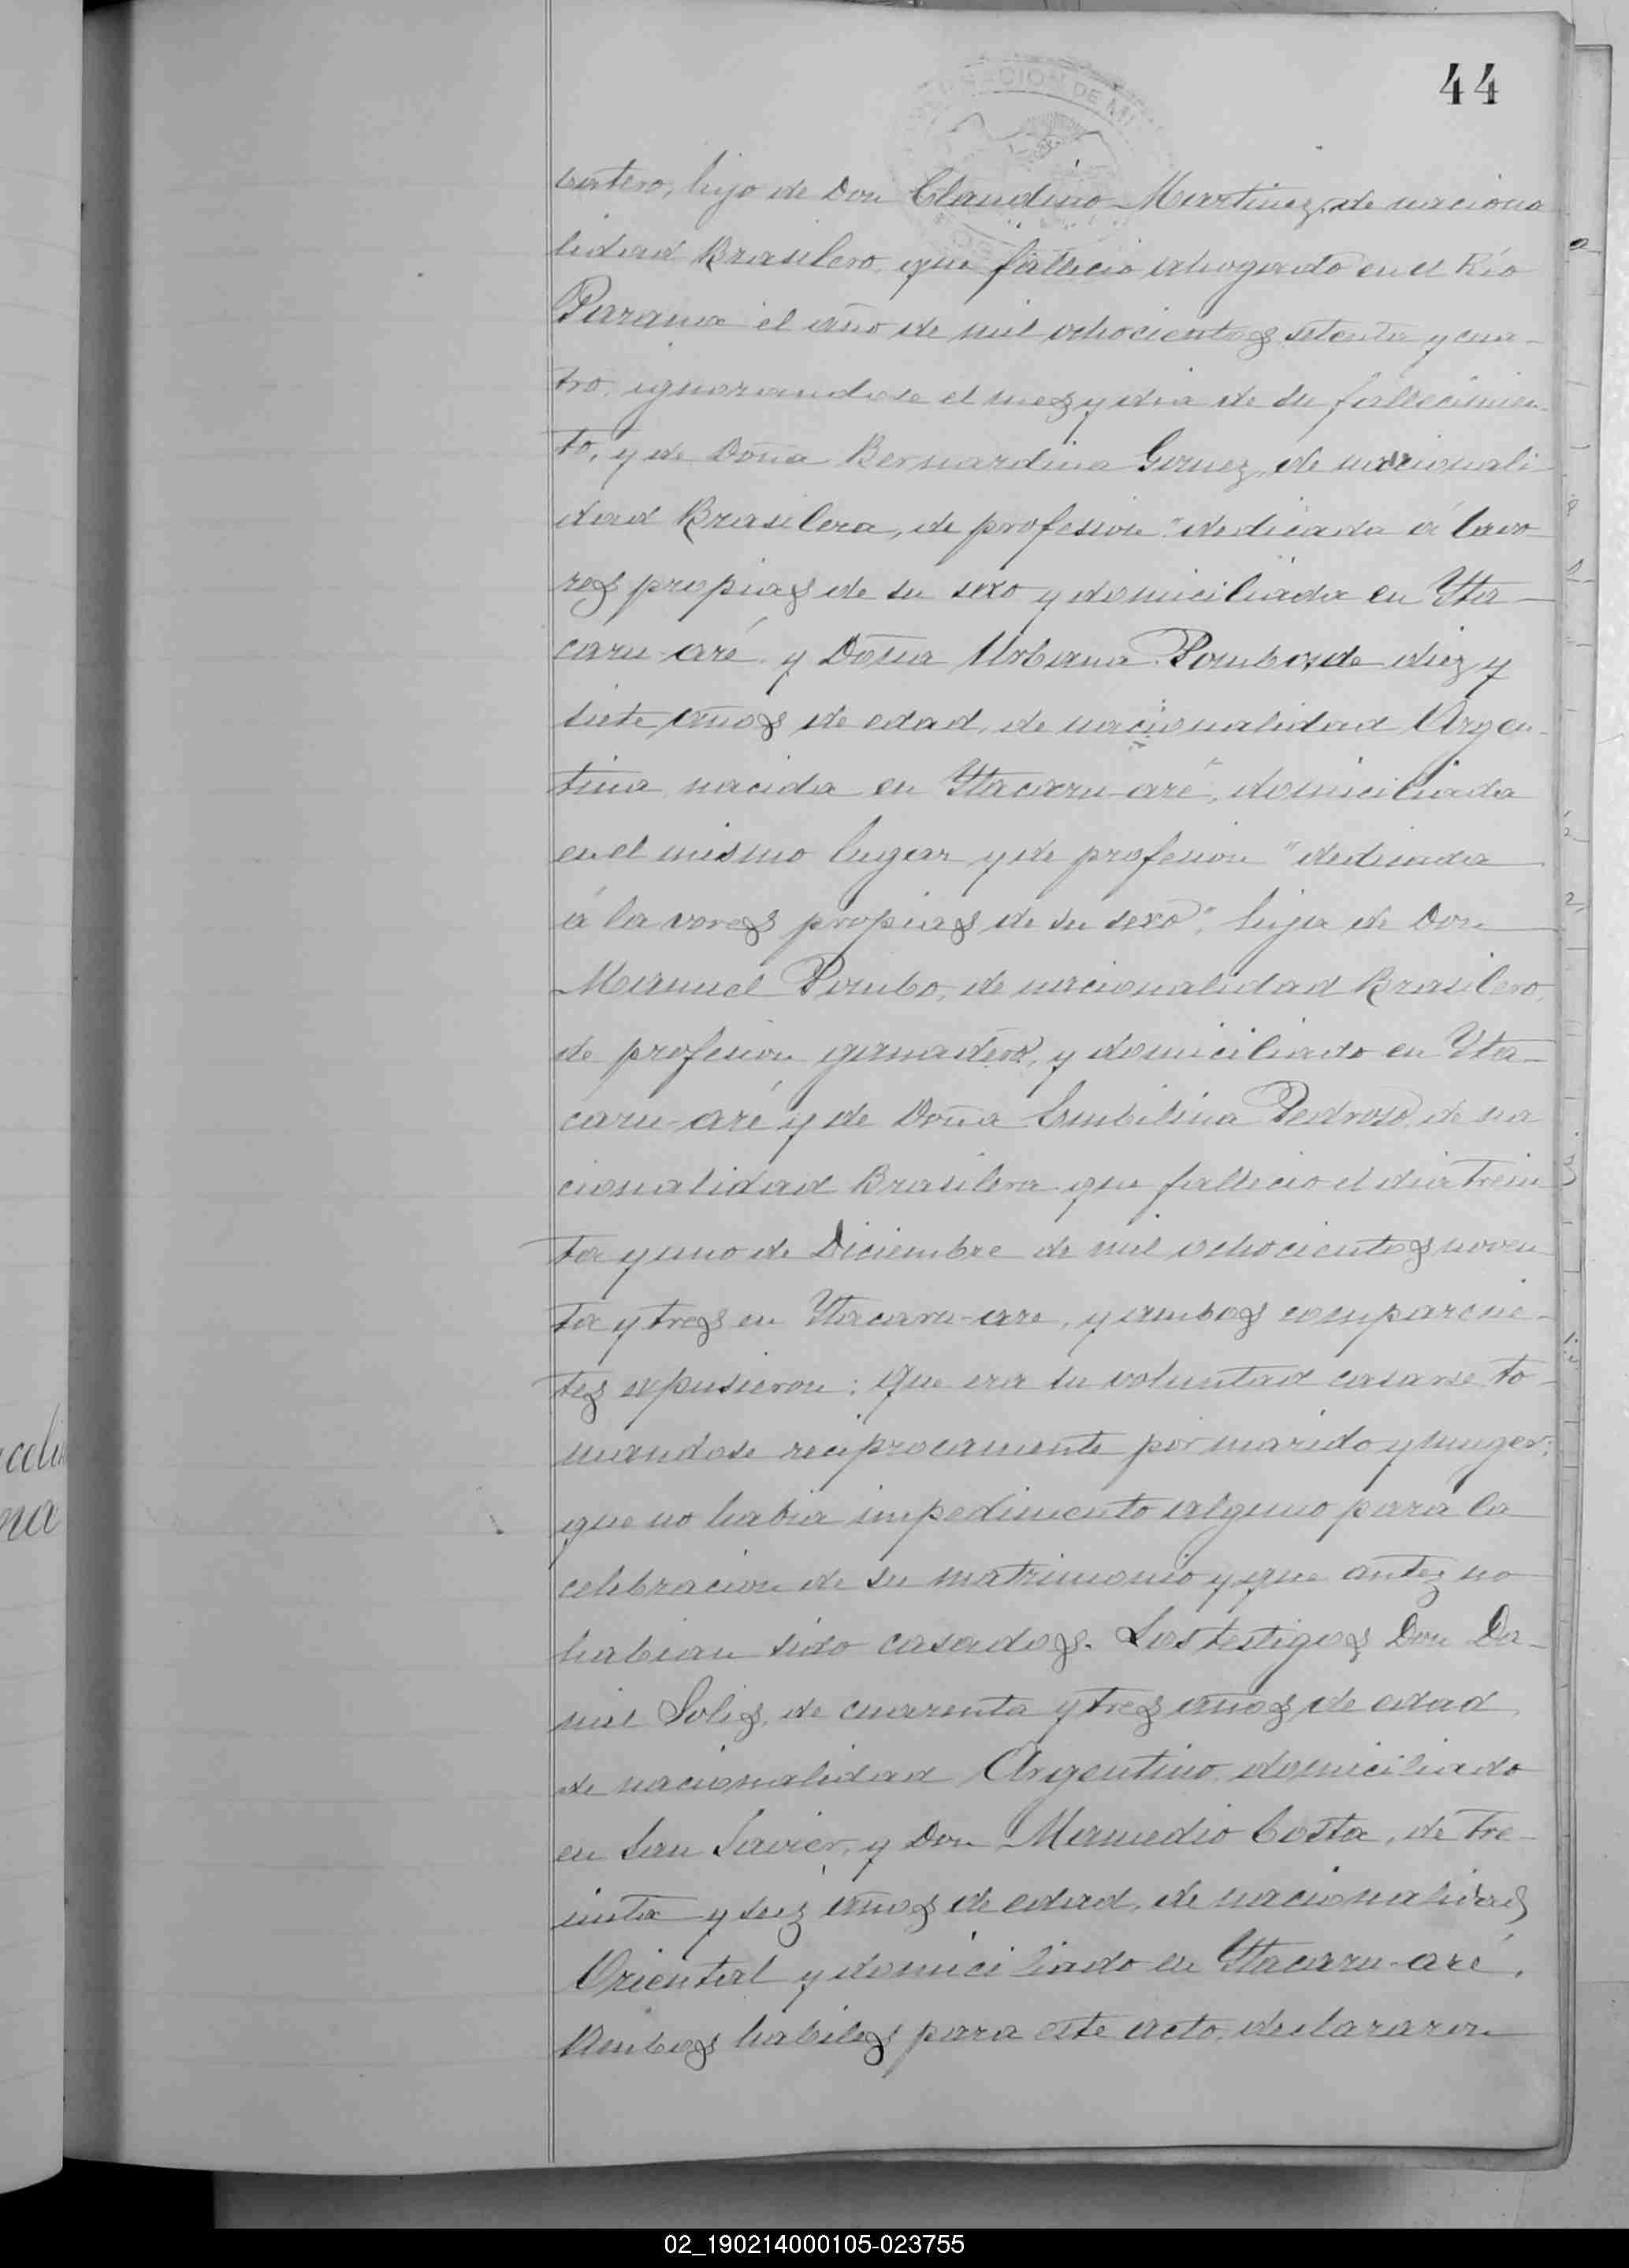 44
hijo de Don Claudino Martinez, de naciona
lidad Brasilero, que fallecio ahogado en el Río
Parana el año de mil ochocientos setenta y cua-
tro, ignorandose el mez y dia de su fallecimien-
to, y de Doña Bernardina Gomez, de nacionali
dad Brasilera, de profesion "dedicada á lavo-
res propias de su sexo y domiciliada en Yta-
caru-aré y Doña Urbana Pombo, de diez y
siete años de edad, de nacionalidad Argen-
tina, nacida en Ytacaru-aré, domiciliada
en el mismo lugar y de profesion "dedicada
á la vores propias de su sexo", hija de Don
Manuel Pombo, de nacionalidad Brasilero,
de profesion ganadero, y domiciliado en Yta-
caru-aré y de Doña Pedroso, de na
cionalidad Brasilera que fallecio el dia trein
ta y uno de Diciembre de mil ochocientos noven
ta y tres en Ytacaru-are, y ambos comparcie-
tes expusieron: que era su voluntad casarse to-
mandose reciprocamente por marido y muger;
que no habia impedimento alguno para la
celebracion de su matrimonio y que antez no
habian sido casados. Los testigos Don Da-
niel Solis, de cuarenta y tres años de edad,
de nacionalidad Argentino domiciliado
en San Javier, y Don Mamedio Costa, de tre-
inta y seiz años de edad, de nacionalidad
Oriental y domiciliado en Ytacaru-aré.
Ambos habiles para este acto, declararon
02_190214000105-023755